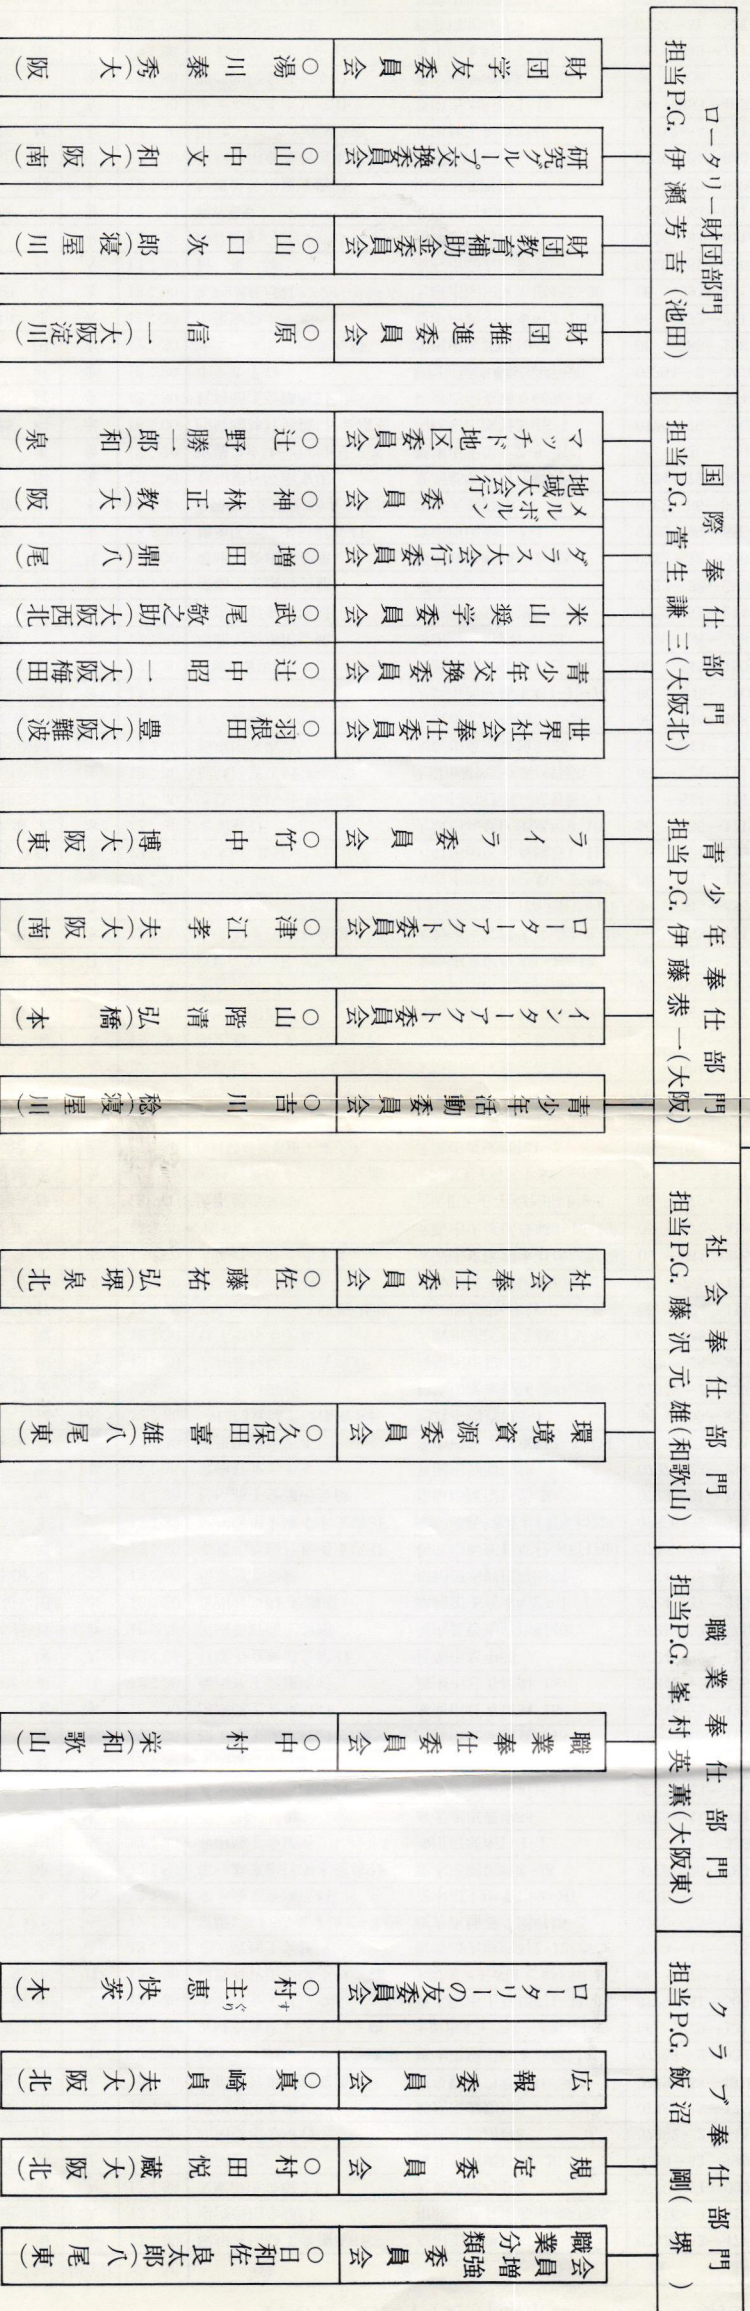 ロータリー財団部門
担当P.G. 伊瀬芳吉(池田)
財団学友委員会
○湯川泰秀(大阪)
研究グループ交換委員会
○山中文和(大阪南)
財団教育補助金委員会
○山口次郎(寝屋川)
財団推進委員会
○原信一(大阪淀川)
国際奉仕部門
担当P.G. 菅生謙三(大阪北)
マッチド地区委員会
○辻野勝一郎(和泉)
メルボルン地域大会行委員会
○神林正教(大阪)
ダラス大会行委員会
○増田鼎(八尾)
米山奨学委員会
○武尾敬之助(大阪西北)
青少年交換委員会
○辻中昭一(大阪梅田)
世界社会奉仕委員会
○羽根田豊(大阪難波)
青少年奉仕部門
担当P.G. 伊藤恭一(大阪)
ライラ委員会
○竹中博(大阪東)
ローターアクト委員会
○津江孝夫(大阪南)
インターアクト委員会
○山階清弘(橋本)
青少年活動委員会
○吉川稔(寝屋川)
社会奉仕部門
担当P.G. 藤沢元雄(和歌山)
社会奉仕委員会
○佐藤祐弘(堺泉北)
環境資源委員会
○久保田喜雄(八尾東)
職業奉仕部門
担当P.G. 峯村英薫(大阪東)
職業奉仕委員会
○中村栄(和歌山)
クラブ奉仕部門
担当P.G. 飯沼剛(堺)
ロータリーの友委員会
○村主恵快(茨木)
広報委員会
○真崎貞夫(大阪北)
規定委員会
○村田悦蔵(大阪北)
会員増強職業分類委員会
○日和佐良太郎(八尾東)